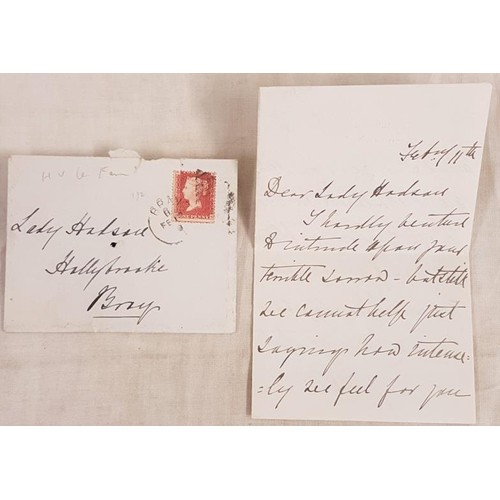 Lady Hodson
Hollybrooke
Bray
Feby 11th
Dear Lady Hodson
I hardly venture
to intrude upon your
terrible sorrow - but still
we cannot help just
saying how intense=
=ly we feel for you